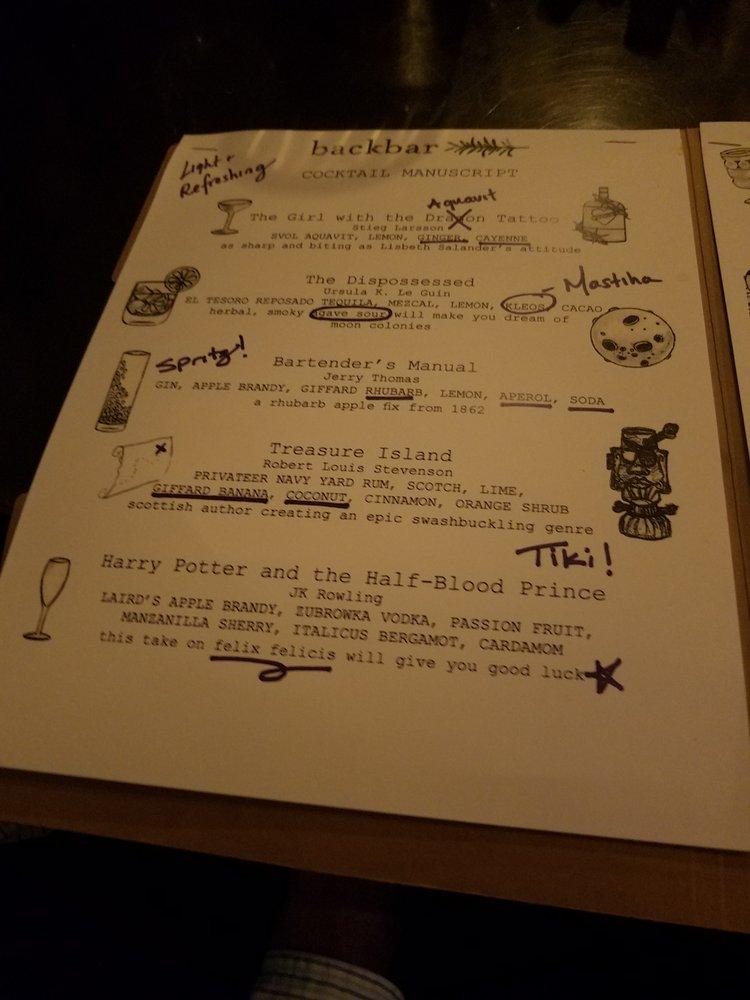 backbar
COCKTAIL MANUSCRIPT
Light +
Refreshing
Aquavit
The Girl with the Dragon Tattoo
Stieg Larsson
SVOL AQUAVIT, LEMON, GINGER, CAYENNE
as sharp and biting as Lisbeth Salander's attitude
The Dispossessed
Ursula K. Le Guin
Mastiha
EL TESORO REPOSADO TEQUILA, MEZCAL, LEMON, KLEOS, CACAO
herbal, smoky agave sour will make you dream of
moon colonies
Spritz!
Bartender's Manual
Jerry Thomas
GIN, APPLE BRANDY, GIFFARD RHUBARB, LEMON, APEROL, SODA
a rhubarb apple fix from 1862
Treasure Island
Robert Louis Stevenson
PRIVATEER NAVY YARD RUM, SCOTCH, LIME,
GIFFARD BANANA, COCONUT, CINNAMON, ORANGE SHRUB
scottish author creating an epic swashbuckling genre
Tiki!
Harry Potter and the Half-Blood Prince
JK Rowling
LAIRD'S APPLE BRANDY, ZUBROWKA VODKA, PASSION FRUIT,
MANZANILLA SHERRY, ITALICUS BERGAMOT, CARDAMOM
this take on felix felicis will give you good luck